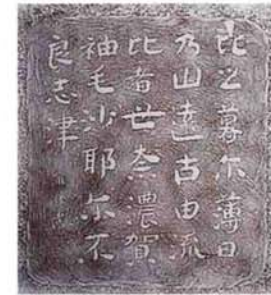 比之暮尔薄日
乃山遠古由流
比者世奈濃賀
袖毛沙耶尔不
良志津